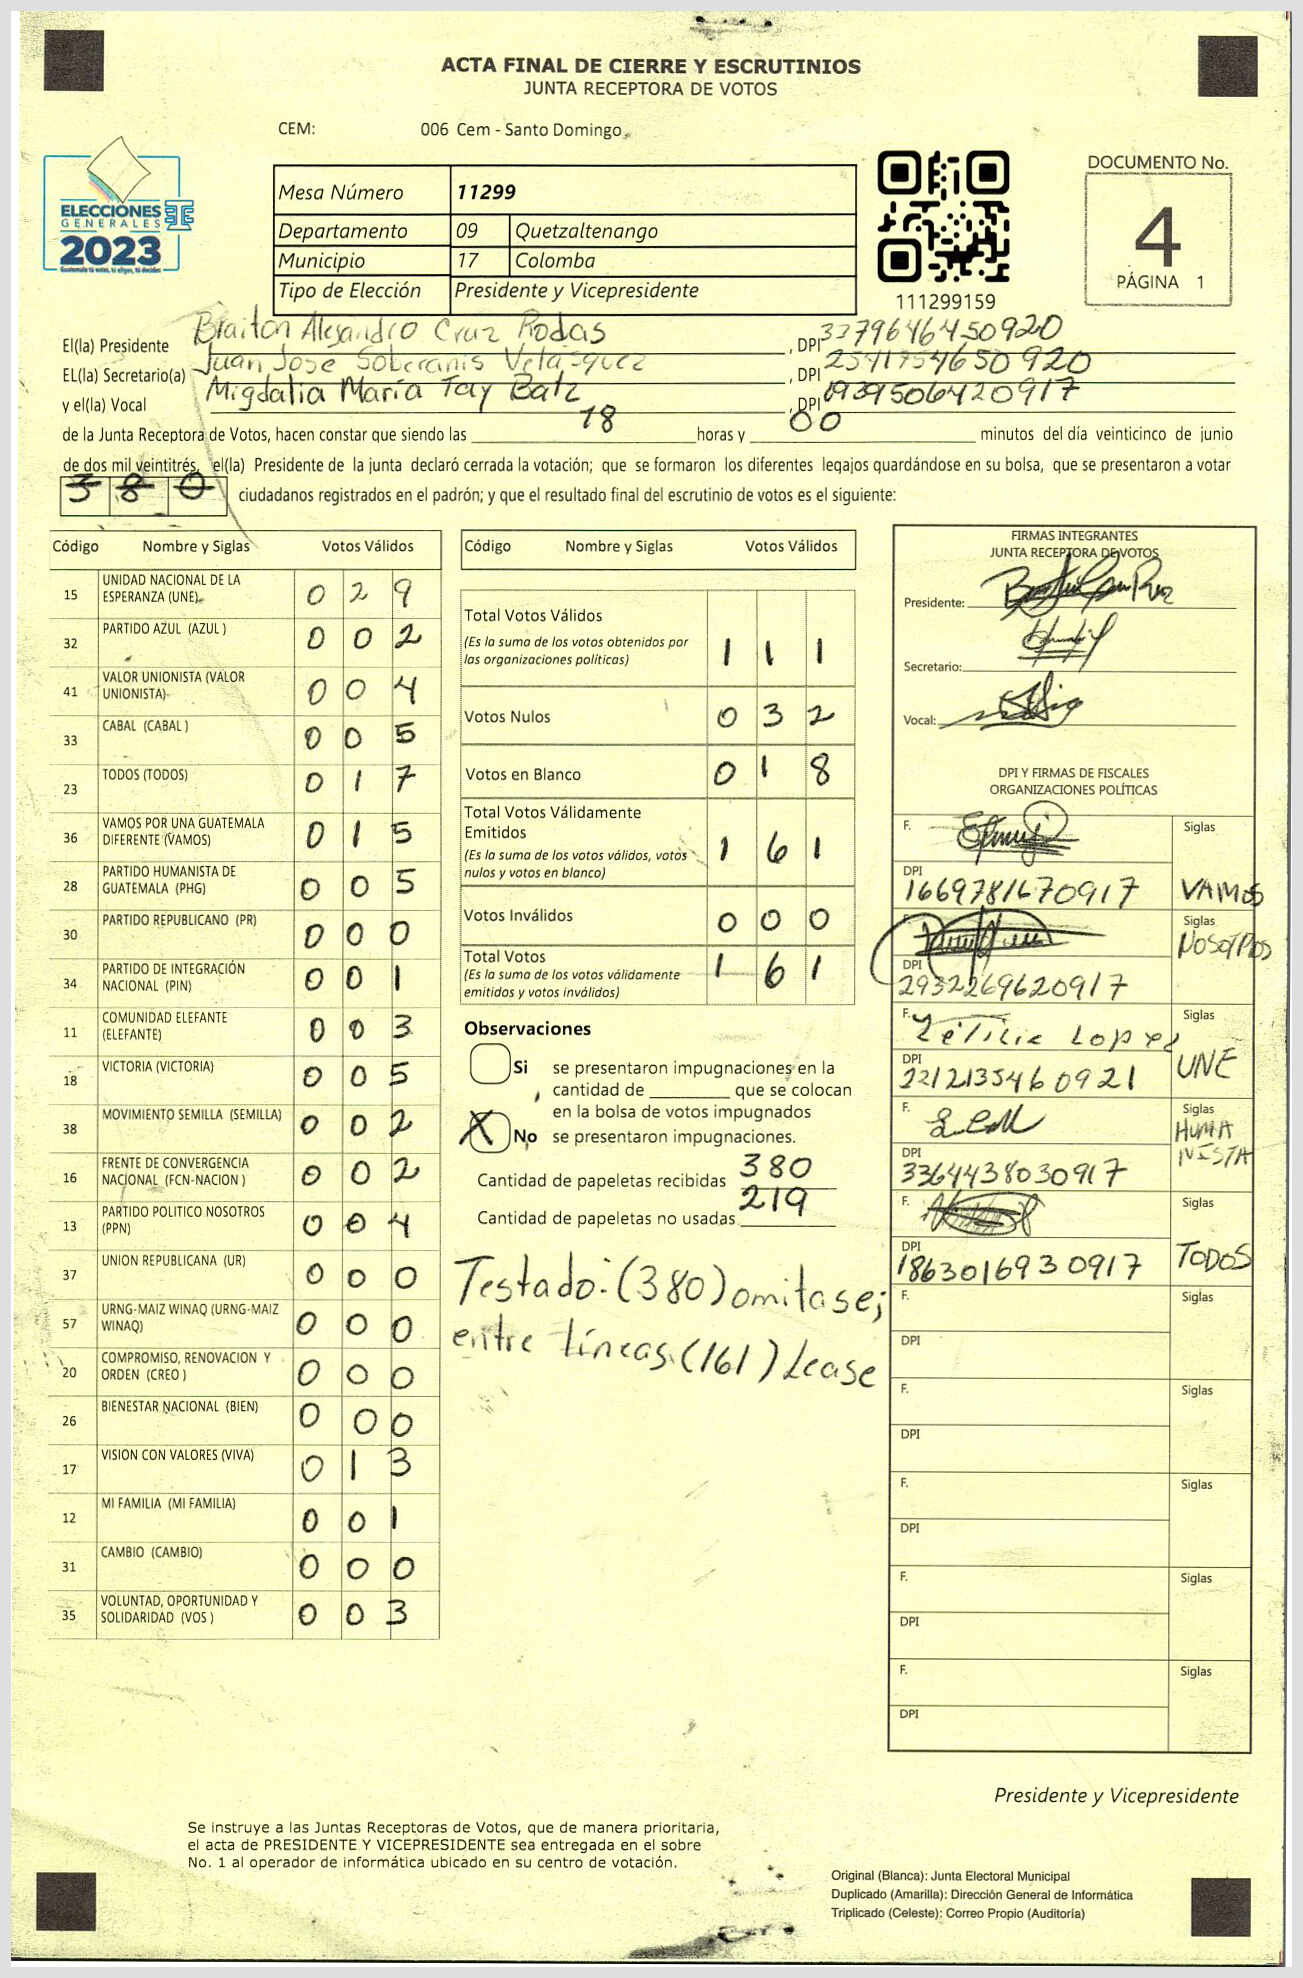 ACTA FINAL DE CIERRE Y ESCRUTINIOS
JUNTA RECEPTORA DE VOTOS
CEM: 006 Cem - Santo Domingo
ELECCIONES
GENERALES
2023
Guatemala tú votas, tú eliges, tú decides
Mesa Número 11299
Departamento 09 Quetzaltenango
Municipio 17 Colomba
Tipo de Elección Presidente y Vicepresidente
111299159
DOCUMENTO No.
4
PÁGINA 1
El(la) Presidente Braiton Alejandro Cruz Rodas , DPI 3379646450920
EL(la) Secretario(a) Juan Jose Soberanis Velásquez , DPI 2541754650920
y el(la) Vocal Migdalia María Tay Batz , DPI 1939506420917
de la Junta Receptora de Votos, hacen constar que siendo las 18 horas y 00 minutos del día veinticinco de junio
de dos mil veintitrés, el(la) Presidente de la junta declaró cerrada la votación; que se formaron los diferentes legajos quardándose en su bolsa, que se presentaron a votar
380 ciudadanos registrados en el padrón; y que el resultado final del escrutinio de votos es el siguiente:
Código Nombre y Siglas Votos Válidos
15 UNIDAD NACIONAL DE LA ESPERANZA (UNE) 0 2 9
32 PARTIDO AZUL (AZUL ) 0 0 2
41 VALOR UNIONISTA (VALOR UNIONISTA) 0 0 4
33 CABAL (CABAL ) 0 0 5
23 TODOS (TODOS) 0 1 7
36 VAMOS POR UNA GUATEMALA DIFERENTE (VAMOS) 0 1 5
28 PARTIDO HUMANISTA DE GUATEMALA (PHG) 0 0 5
30 PARTIDO REPUBLICANO (PR) 0 0 0
34 PARTIDO DE INTEGRACIÓN NACIONAL (PIN) 0 0 1
11 COMUNIDAD ELEFANTE (ELEFANTE) 0 0 3
18 VICTORIA (VICTORIA) 0 0 5
38 MOVIMIENTO SEMILLA (SEMILLA) 0 0 2
16 FRENTE DE CONVERGENCIA NACIONAL (FCN-NACION ) 0 0 2
13 PARTIDO POLITICO NOSOTROS (PPN) 0 0 4
37 UNION REPUBLICANA (UR) 0 0 0
57 URNG-MAIZ WINAQ (URNG-MAIZ WINAQ) 0 0 0
20 COMPROMISO, RENOVACION Y ORDEN (CREO ) 0 0 0
26 BIENESTAR NACIONAL (BIEN) 0 0 0
17 VISION CON VALORES (VIVA) 0 1 3
12 MI FAMILIA (MI FAMILIA) 0 0 1
31 CAMBIO (CAMBIO) 0 0 0
35 VOLUNTAD, OPORTUNIDAD Y SOLIDARIDAD (VOS ) 0 0 3
Código Nombre y Siglas Votos Válidos
Total Votos Válidos
(Es la suma de los votos obtenidos por
las organizaciones políticas) 1 1 1
Votos Nulos 0 3 2
Votos en Blanco 0 1 8
Total Votos Válidamente
Emitidos
(Es la suma de los votos válidos, votos
nulos y votos en blanco) 1 6 1
Votos Inválidos 0 0 0
Total Votos
(Es la suma de los votos válidamente
emitidos y votos inválidos) 1 6 1
Observaciones
Si se presentaron impugnaciones en la
cantidad de ________ que se colocan
en la bolsa de votos impugnados
X No se presentaron impugnaciones.
Cantidad de papeletas recibidas 380
Cantidad de papeletas no usadas 219
Testado: (380) omitase;
entre líneas (161) Lease
FIRMAS INTEGRANTES
JUNTA RECEPTORA DE VOTOS
Presidente:
Secretario:
Vocal:
DPI Y FIRMAS DE FISCALES
ORGANIZACIONES POLÍTICAS
F. Siglas
DPI
1669781670917 VAMOS
F. Siglas
NOSOTROS
DPI
2932269620917
F. Siglas
Leticia Lopez
DPI UNE
2212135460921
F. Siglas
HUMA
DPI NISTA
3364438030917
F. Siglas
DPI TODOS
1863016930917
F. Siglas
DPI
F. Siglas
DPI
F. Siglas
DPI
F. Siglas
DPI
F. Siglas
DPI
Presidente y Vicepresidente
Se instruye a las Juntas Receptoras de Votos, que de manera prioritaria,
el acta de PRESIDENTE Y VICEPRESIDENTE sea entregada en el sobre
No. 1 al operador de informática ubicado en su centro de votación.
Original (Blanca): Junta Electoral Municipal
Duplicado (Amarilla): Dirección General de Informática
Triplicado (Celeste): Correo Propio (Auditoría)